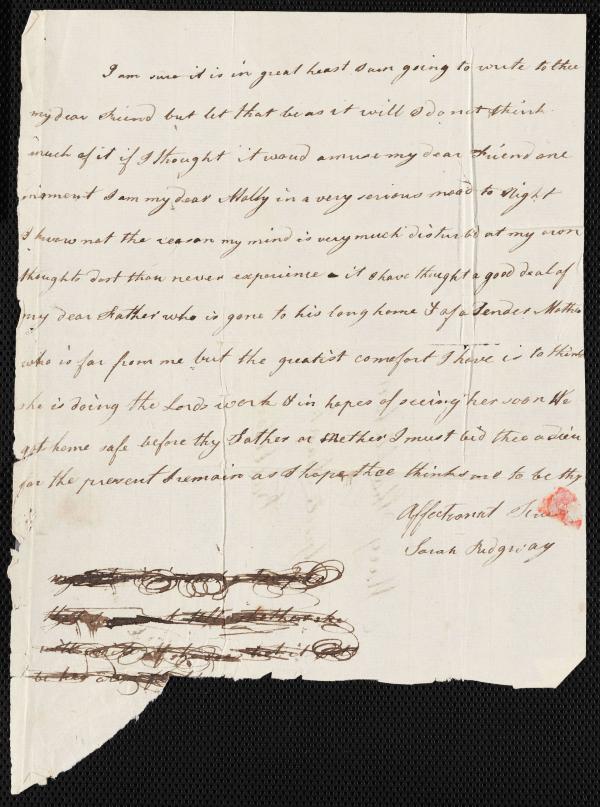 I am sure it is in great heast I am going to write to thee
my dear Friend but let that be as it will I do not think
much of it if I thought it woud amuse my dear Friend one
moment I am my dear Molly in a very serious mood to Night
I know not the reason my mind is very much disturbd at my own
thoughts dost thou never experience it I have thought a good deal of
my dear Father who is gone to his long home & of a Tender Mother
who is far from me but the greatist comfort I have is to think
she is doing the Lords work & in hopes of seeing her soon We
got home safe before thy Father or Mother I must bid thee adieu
for the present I remain as I hope thee thinks me to be thy
Affectionat
Sarah Ridgway